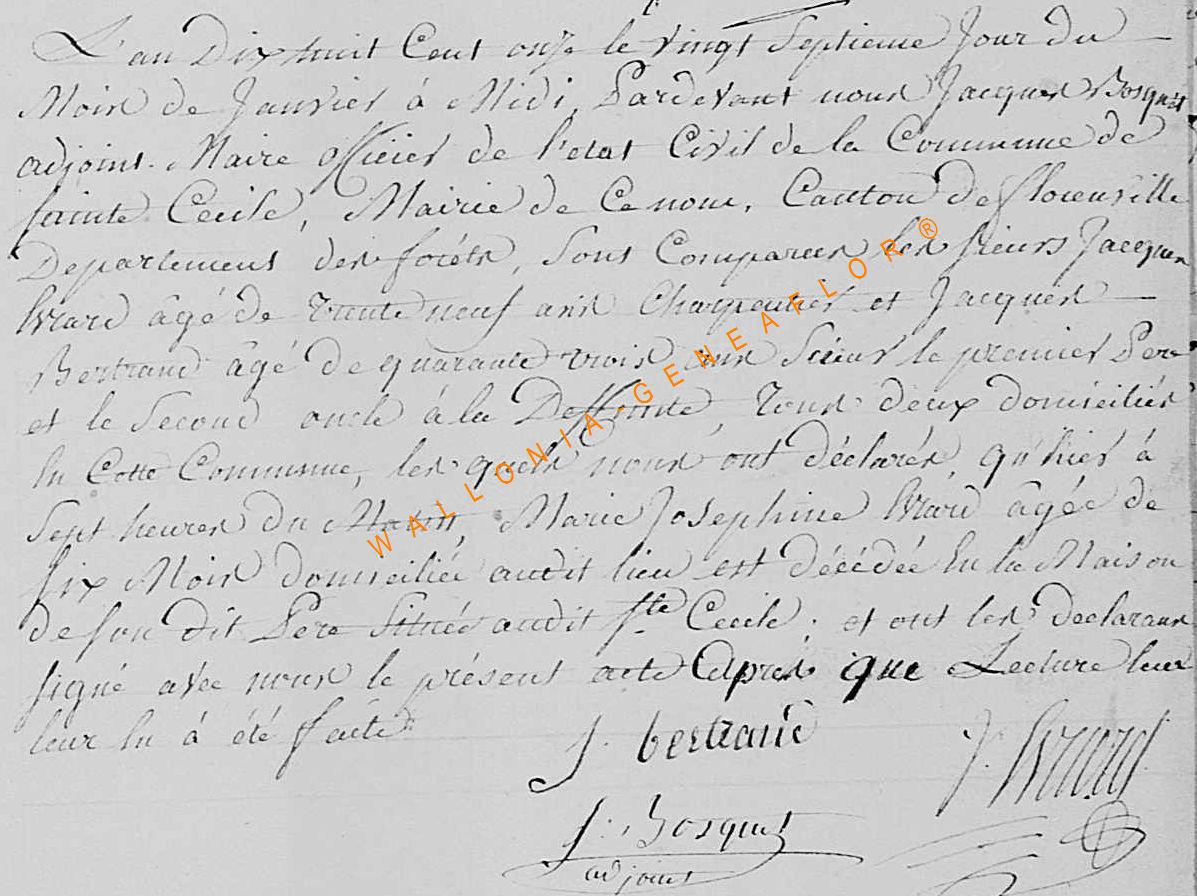 L'an Dix huit Cent onze le vingt Septieme Jour du
Mois de Janvier à Midi, Pardevant nous Jacques Bosquet
adjoint. Maire officier de l'etat Civil de la Commune de
Sainte Cecile, Mairie de Ce nom, Canton de florenville
Departement des foréts, Sont Comparus les sieurs Jacques
Evrard âgé de Trente neuf ans Charpentier et Jacques
Bertrand âgé de quarante trois ans Scieur le premier Pere
et le Second oncle à la Deffunte, Tous deux domiciliés
En Cette Commune, les quels nous ont déclarés qu'hier à
Sept heures du Matin, Marie Josephine Evrard âgée de
Six Mois domiciliée audit lieu est décédée En la Maison
de son dit Pere Située audit Ste Cecile; et ont les declarans
signé avec nous le présent acte Après que Lecture leur
leur En à été faite
J. bertrand
J. Evrard
J. Bosquet
adjoint
WALLONIA-GENEAFLOR®